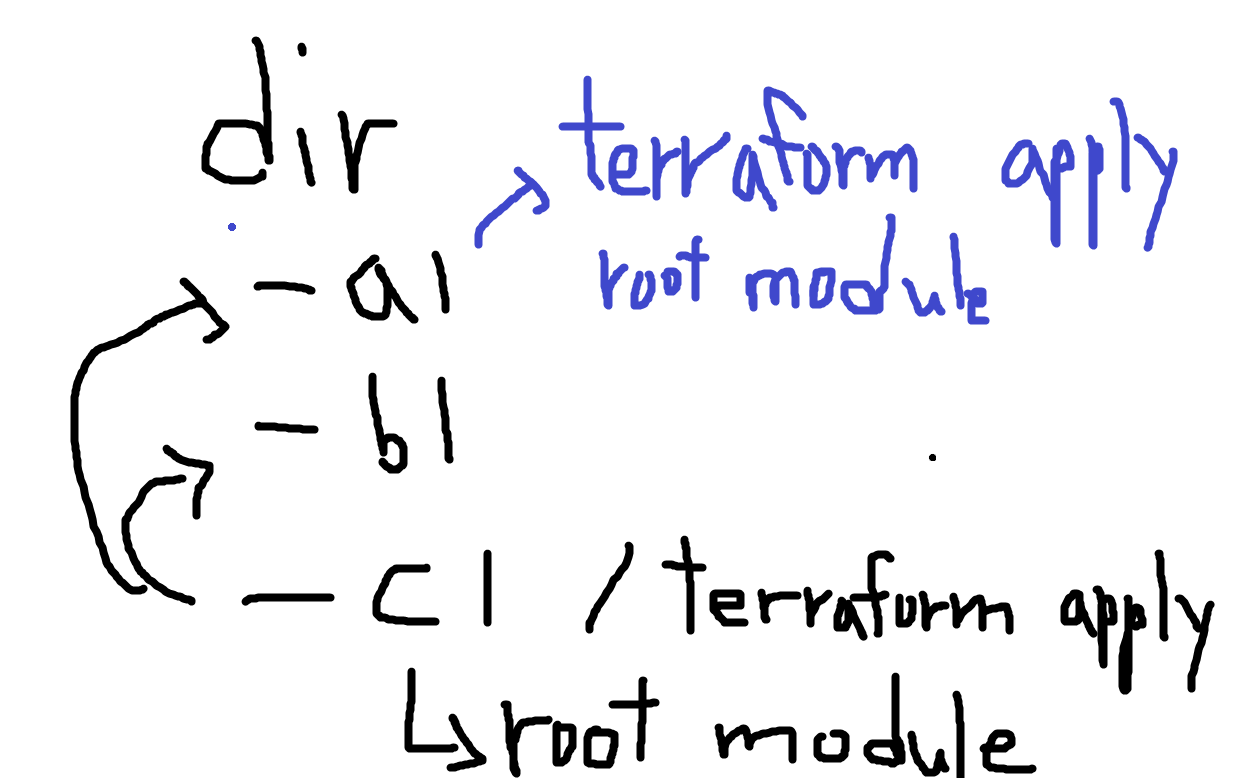 dir
terraform apply
- a1
root module
- b1
- c1 / terraform apply
root module